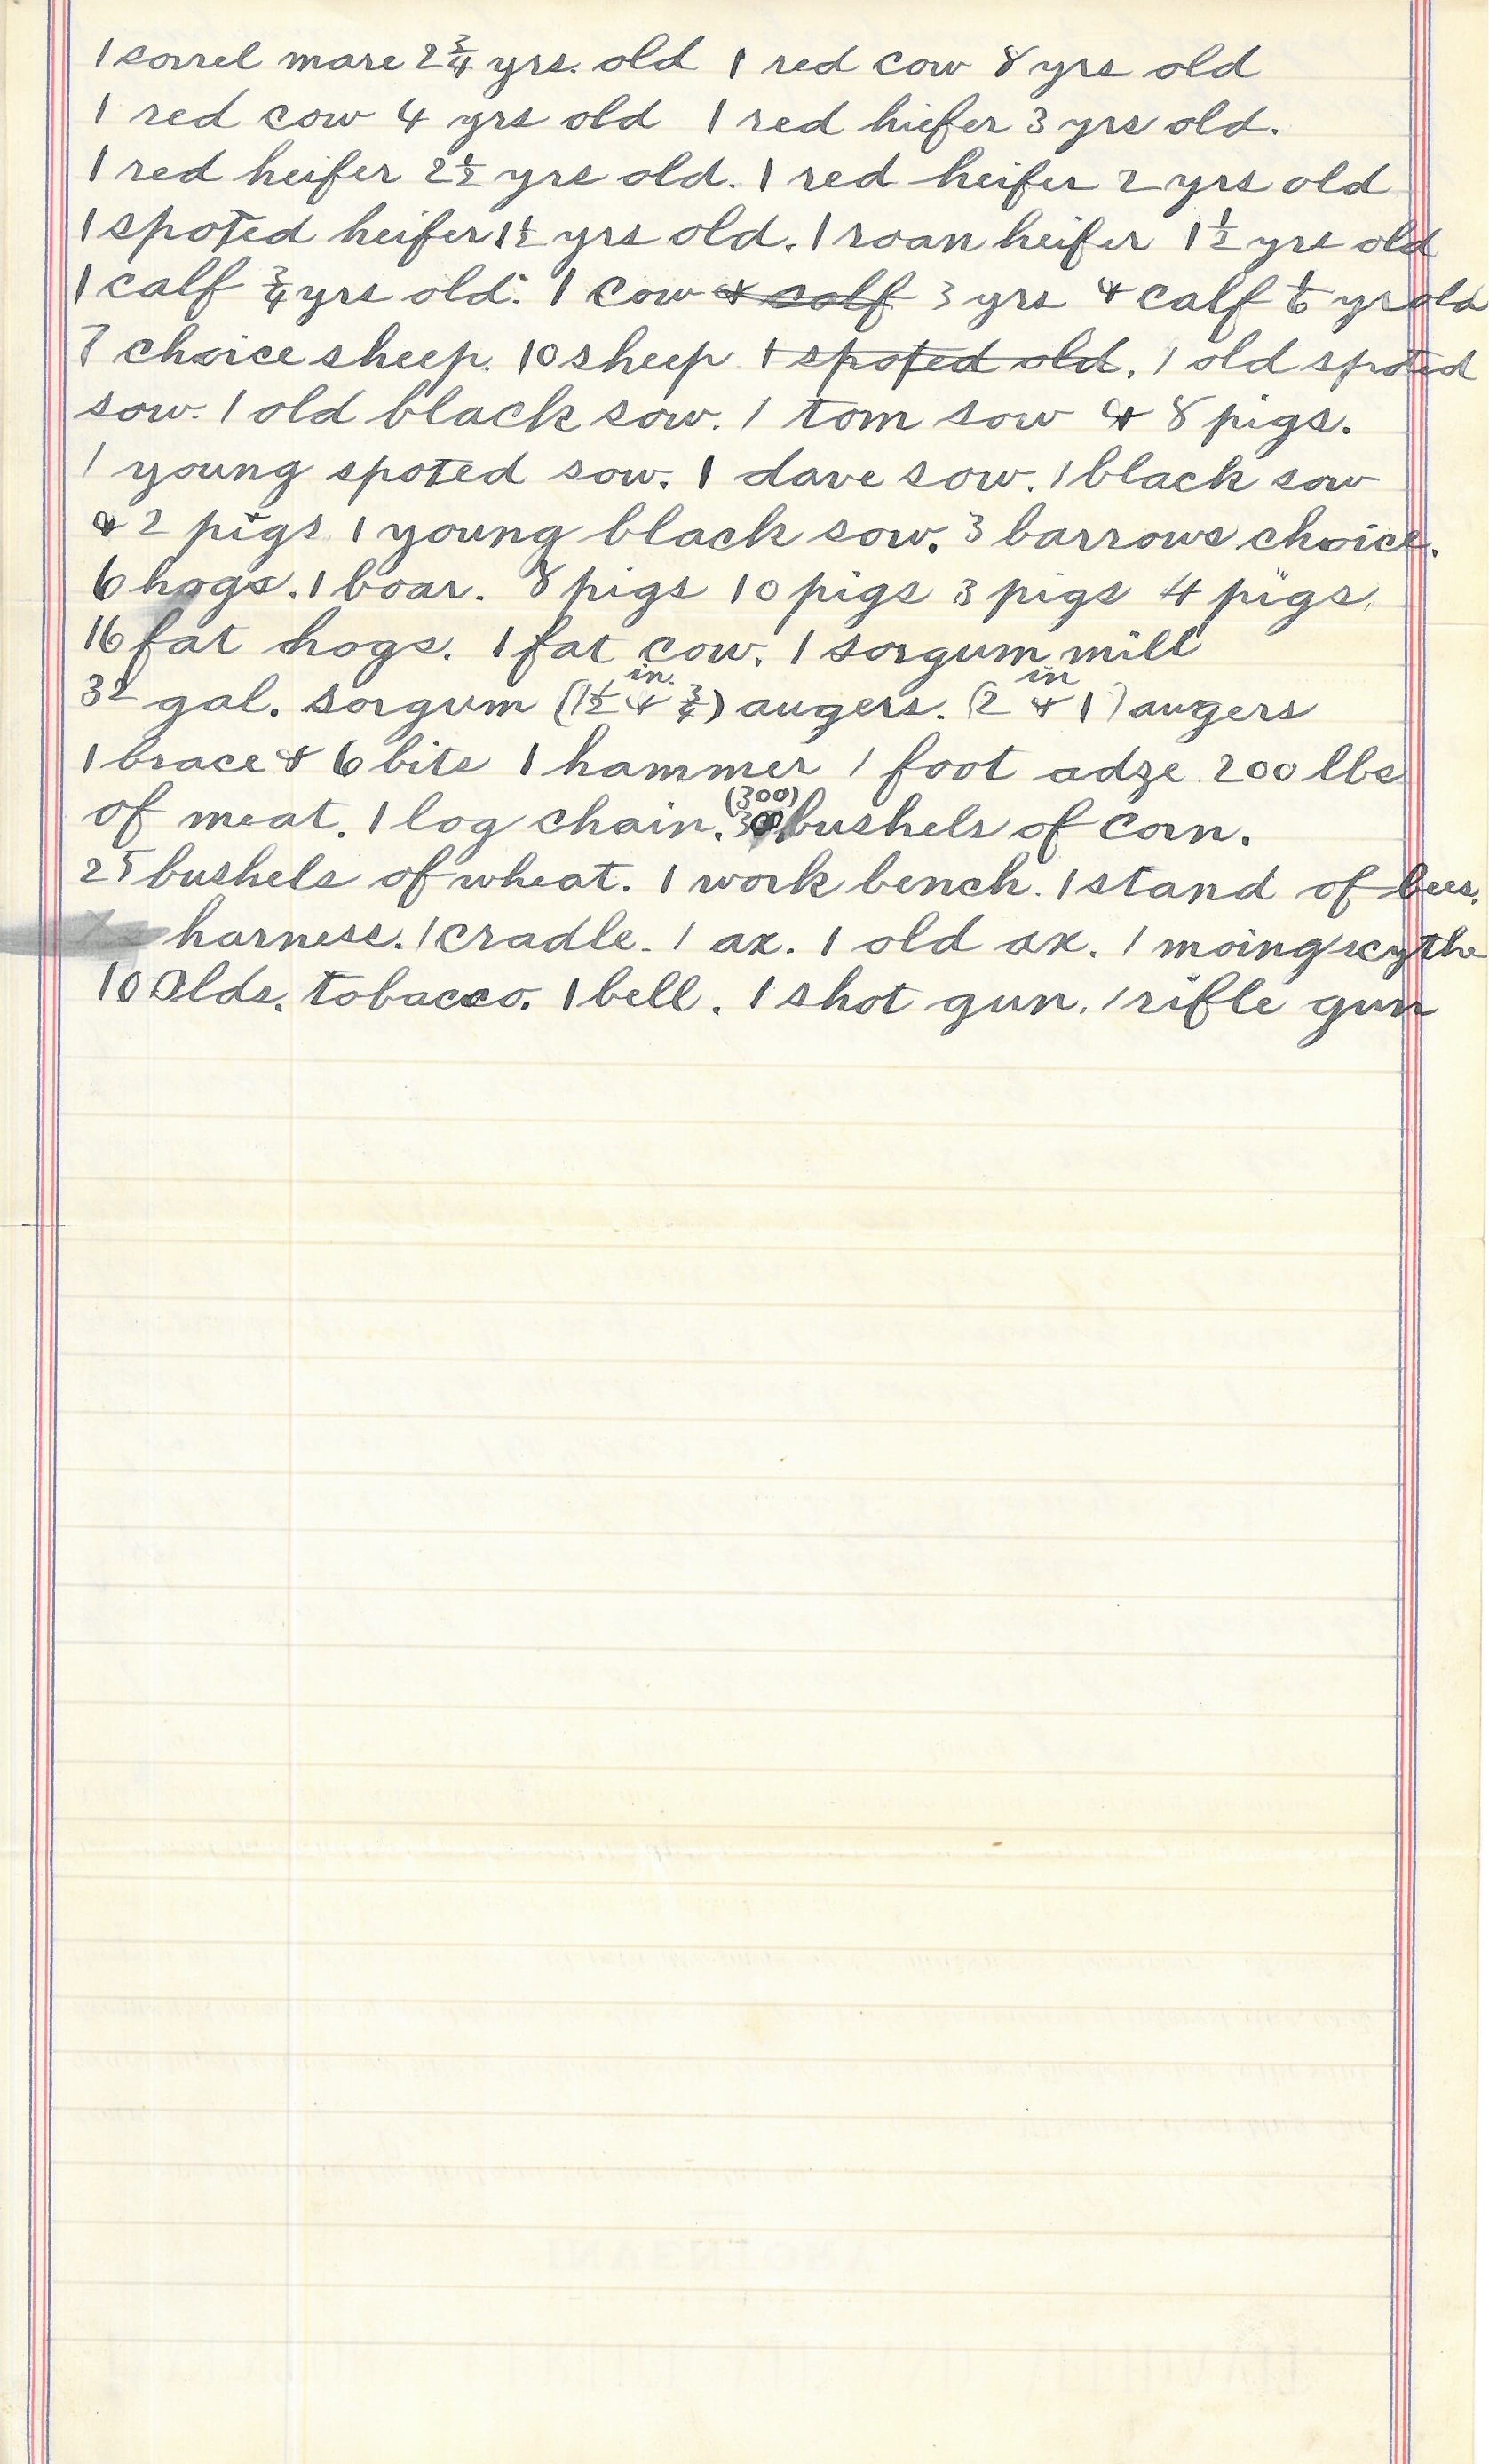 1 sorrel mare 2 3/4 yrs. old 1 red cow 8 yrs old
1 red cow 4 yrs old 1 red hiefer 3 yrs old.
1 red heifer 2 1/2 yrs old. 1 red heifer 2 yrs old
1 spoted heifer 1 1/2 yrs old. 1 roan heifer 1 1/2 yrs old
1 calf 3/4 yrs old. 1 cow & calf 3 yrs & calf 1/6 yr old
7 choice sheep. 10 sheep 1 spoted old. 1 old spoted
sow. 1 old black sow. 1 tom sow & 8 pigs.
1 young spoted sow. 1 dave sow. 1 black sow
& 2 pigs 1 young black sow. 3 barrows choice.
6 hogs. 1 boar. 8 pigs 10 pigs 3 pigs 4 pigs.
16 fat hogs. 1 fat cow. 1 sorgum mill
in. in
32 gal. sorgum (1 1/2 & 3/4) augers. (2 & 1) augers
1 brace & 6 bits 1 hammer 1 foot adze 200 lbs
(300)
of meat. 1 log chain. bushels of corn.
25 bushels of wheat. 1 work bench. 1 stand of bees.
harness. 1 cradle. 1 ax. 1 old ax. 1 moing scythe
100 lds. tobacco. 1 bell. 1 shot gun. 1 rifle gun